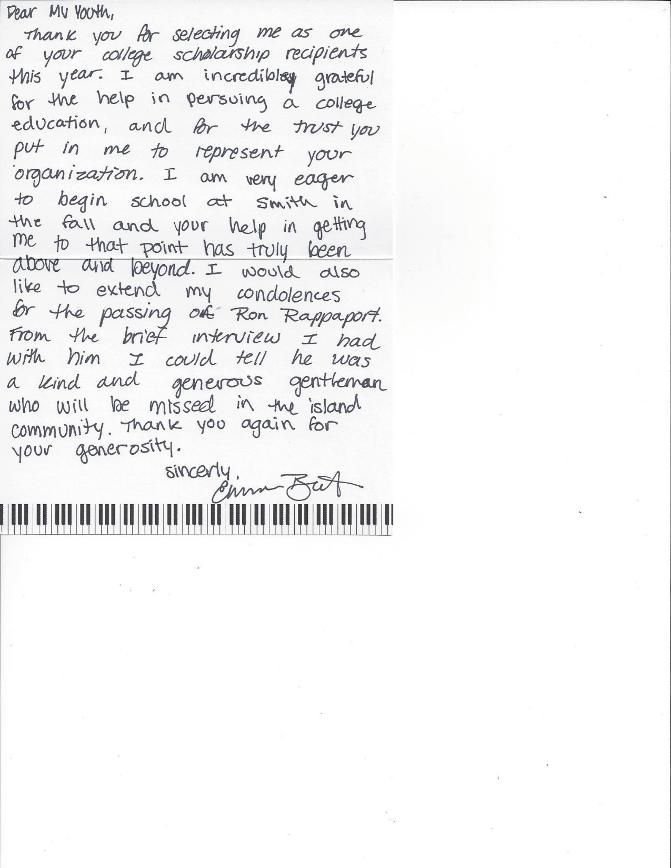 Dear MV Youth,
Thank you for selecting me as one
of your college scholarship recipients
this year. I am incredibley grateful
for the help in persuing a college
education, and for the trust you
put in me to represent your
organization. I am very eager
to begin school at Smith in
the fall and your help in getting
me to that point has truly been
above and beyond. I would also
like to extend my condolences
for the passing of Ron Rappaport.
From the brief interview I had
with him I could tell he was
a kind and generous gentleman
who will be missed in the island
community. Thank you again for
your generosity.
sincerly,